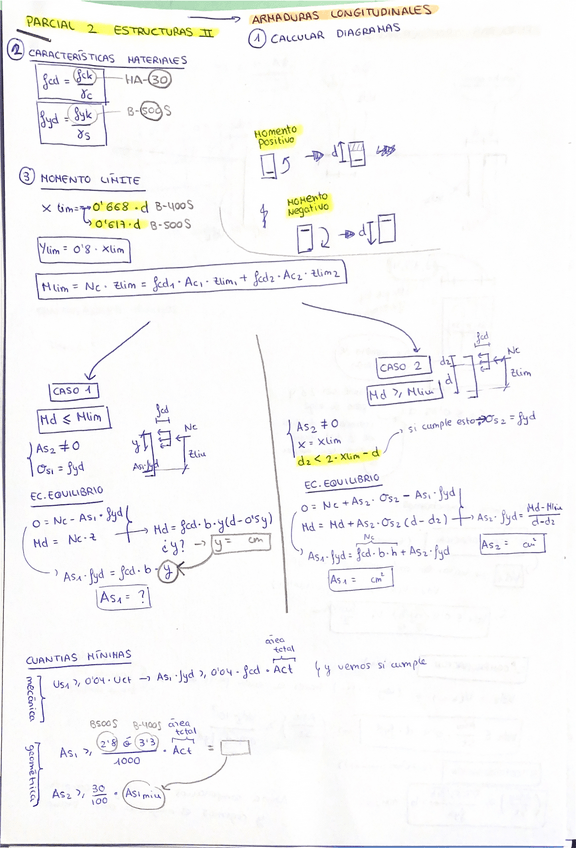 PARCIAL 2 ESTRUCTURAS II → ARMADURAS LONGITUDINALES
① CALCULAR DIAGRAMAS
② CARACTERÍSTICAS MATERIALES
fcd = fck / γc — HA-30
fyd = fyk / γs — B-500S
MOMENTO Positivo
d
③ MOMENTO LÍMITE
x lim = 0'668·d B-400S
0'617·d B-500S
MOMENTO Negativo
d
Ylim = 0'8 · xlim
Mlim = Nc · zlim = fcd1 · Ac1 · zlim1 + fcd2 · Ac2 · zlim2
CASO 1
Md ≤ Mlim
As2 ≠ 0
σs1 = fyd
fcd
y
Nc
Zlim
As1·fyd
EC. EQUILIBRIO
0 = Nc - As1·fyd
Md = Nc·z
Md = fcd·b·y(d-0'5y)
¿y? → y = cm
As1·fyd = fcd·b·y
As1 = ?
CASO 2
Md ≥ Mlim
fcd
d2
d
Nc
Zlim
As2 ≠ 0
x = xlim
d2 < 2·xlim-d
si cumple esto → σs2 = fyd
EC. EQUILIBRIO
0 = Nc + As2·σs2 - As1·fyd
Md = Md + As2·σs2 (d-d2)
As2·fyd = Md-Mlim / d-d2
Nc
As1·fyd = fcd·b·h + As2·fyd
As2 = cm²
As1 = cm²
CUANTIAS MÍNIMAS
mecánica
Us1 ≥ 0'04·Uct → As1·fyd ≥ 0'04·fcd·Act
área total
y vemos si cumple
geométrica
B500S B-400S área total
As1 ≥ 2'8 ó 3'3 / 1000 · Act =
As2 ≥ 30/100 · As1min